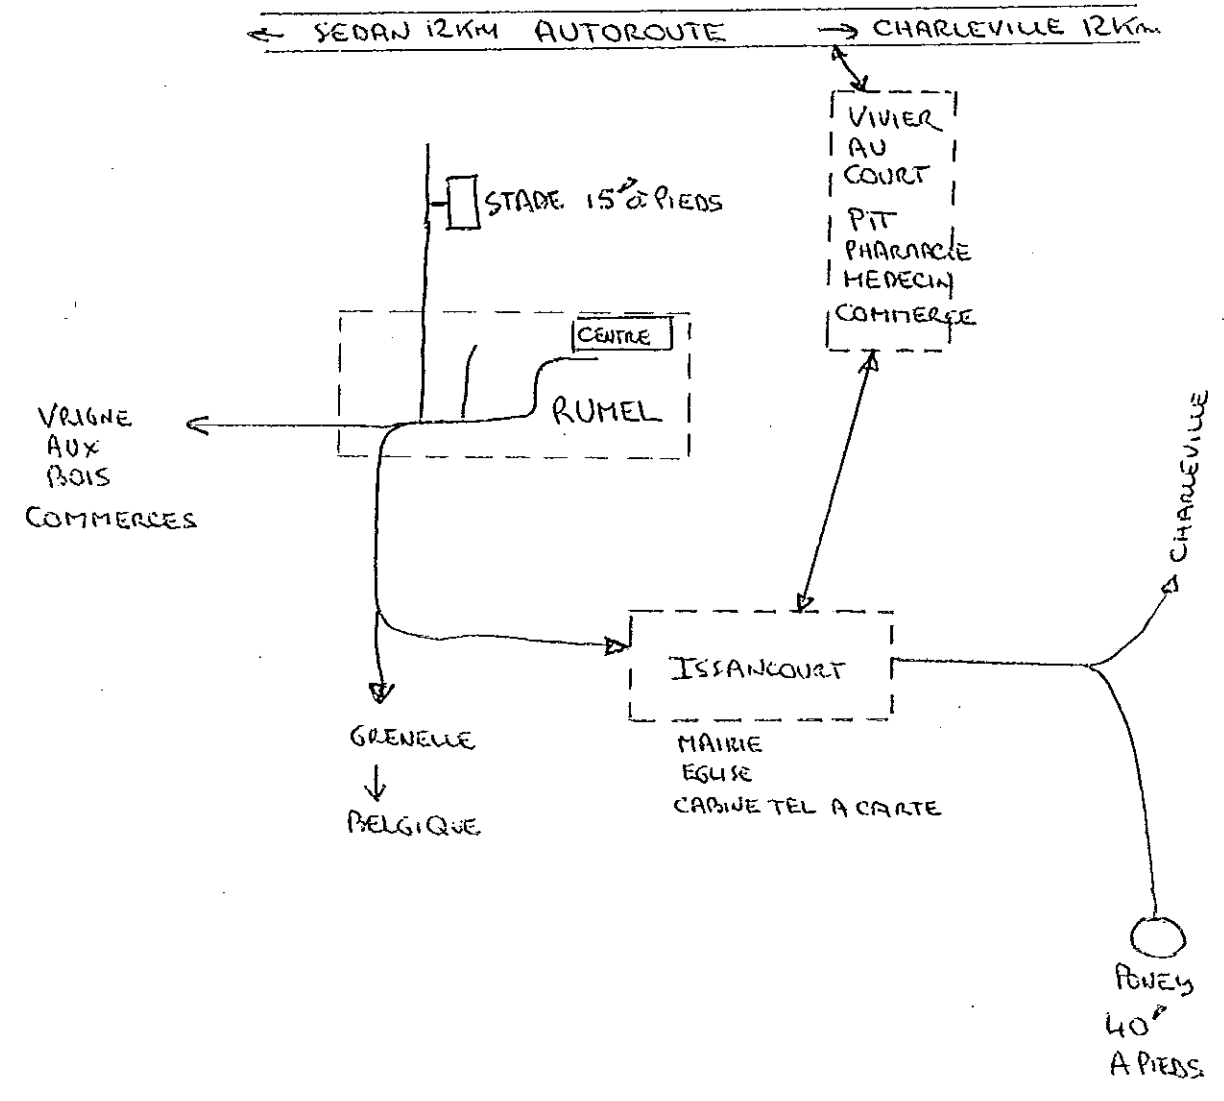 ← SEDAN 12KM AUTOROUTE → CHARLEVILLE 12KM
VIVIER
AU
COURT
PTT
PHARMACIE
MEDECIN
COMMERCE
STADE 15' à PIEDS
CENTRE
RUMEL
VRIGNE
AUX
BOIS
COMMERCES
CHARLEVILLE
ISSANCOURT
MAIRIE
EGLISE
CABINE TEL A CARTE
GRENELLE
↓
BELGIQUE
PONEY
40'
A PIEDS